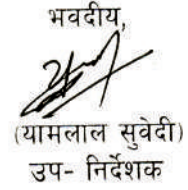 भवदीय,
(यामलाल सुवेदी)
उप- निर्देशक